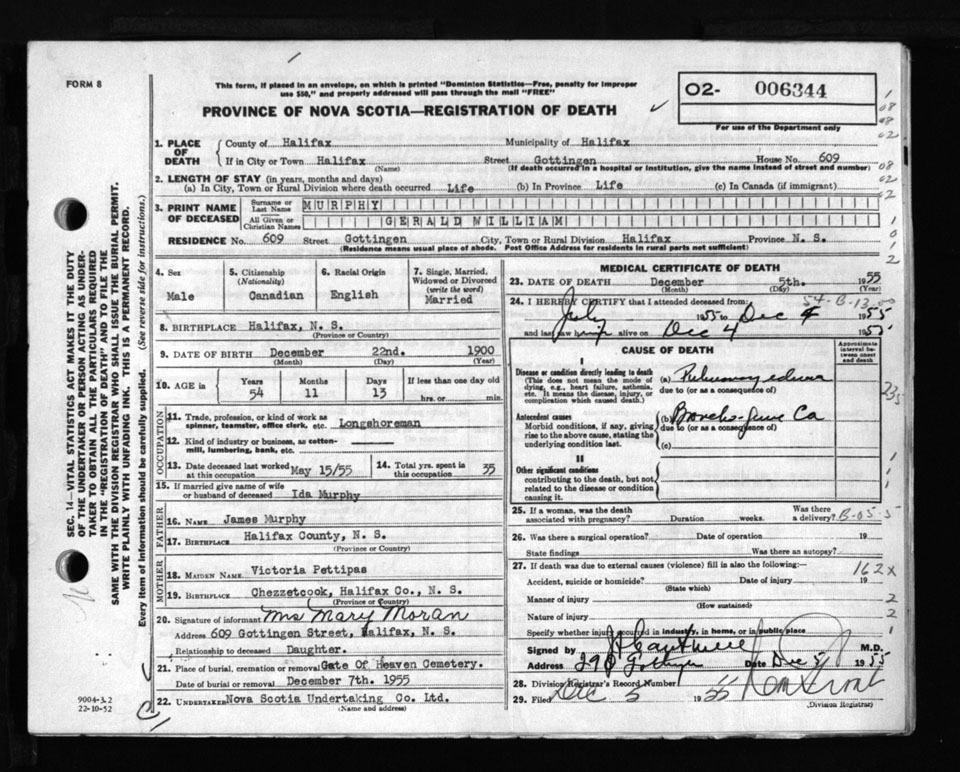 FORM 8
This form, if placed in an envelope, on which is printed "Dominion Statistics—Free, penalty for improper
use $50," and properly addressed will pass through the mail "FREE"
PROVINCE OF NOVA SCOTIA—REGISTRATION OF DEATH
02- 006344
For use of the Department only
1. PLACE OF DEATH
County of Halifax Municipality of Halifax
If in City or Town Halifax Street Gottingen House No. 609
(Name) (If death occurred in a hospital or institution, give the name instead of street and number)
2. LENGTH OF STAY (in years, months and days)
(a) In City, Town or Rural Division where death occurred Life (b) In Province Life (c) In Canada (if immigrant)
3. PRINT NAME OF DECEASED
Surname or Last Name MURPHY
All Given or Christian Names GERALD WILLIAM
RESIDENCE No. 609 Street Gottingen City, Town or Rural Division Halifax Province N. S.
(Residence means usual place of abode. Post Office Address for residents in rural parts not sufficient)
4. Sex Male
5. Citizenship (Nationality) Canadian
6. Racial Origin English
7. Single, Married, Widowed or Divorced (write the word) Married
8. BIRTHPLACE Halifax, N. S.
(Province or Country)
9. DATE OF BIRTH December 22nd. 1900
(Month) (Day) (Year)
10. AGE in Years Months Days If less than one day old
54 11 13 hrs. or min.
OCCUPATION
11. Trade, profession, or kind of work as
spinner, teamster, office clerk, etc. Longshoreman
12. Kind of industry or business, as cotton-
mill, lumbering, bank, etc.
13. Date deceased last worked at this occupation May 15/55
14. Total yrs. spent in this occupation 35
15. If married give name of wife
or husband of deceased Ida Murphy
FATHER
16. NAME James Murphy
17. BIRTHPLACE Halifax County, N. S.
(Province or Country)
MOTHER
18. MAIDEN NAME Victoria Pettipas
19. BIRTHPLACE Chezzetcook, Halifax Co., N. S.
(Province or Country)
20. Signature of informant Mrs Mary Moran
Address 609 Gottingen Street, Halifax, N. S.
Relationship to deceased Daughter.
21. Place of burial, cremation or removal Gate Of Heaven Cemetery.
Date of burial or removal December 7th. 1955
22. UNDERTAKER Nova Scotia Undertaking Co. Ltd.
(Name and address)
MEDICAL CERTIFICATE OF DEATH
23. DATE OF DEATH December 5th. 1955
(Month) (Day) (Year)
24. I HEREBY CERTIFY that I attended deceased from:
July 1955 to Dec 4 1955
and last saw him alive on Dec 4 195
CAUSE OF DEATH
Approximate interval between onset and death
I
Disease or condition directly leading to death
(This does not mean the mode of dying, e.g., heart failure, asthenia, etc. It means the disease, injury, or complication which caused death.)
(a) Pulmonary edema
due to (or as a consequence of)
Antecedent causes
Morbid conditions, if any, giving rise to the above cause, stating the underlying condition last.
(b) Broncho-genic Ca
due to (or as a consequence of)
(c)
II
Other significant conditions
contributing to the death, but not related to the disease or condition causing it.
25. If a woman, was the death associated with pregnancy? Duration weeks. Was there a delivery? B-05-5
26. Was there a surgical operation? Date of operation 19
State findings Was there an autopsy?
27. If death was due to external causes (violence) fill in also the following:— 162x
Accident, suicide or homicide? Date of injury 19
(State which)
Manner of injury
(How sustained)
Nature of injury
Specify whether injury occurred in industry, in home, or in public place
Signed by M.D.
Address 290 Gottingen Date Dec 5 1955
28. Division Registrar's Record Number
29. Filed Dec 5 1955
(Division Registrar)
SEC. 14—VITAL STATISTICS ACT MAKES IT THE DUTY
OF THE UNDERTAKER OR PERSON ACTING AS UNDER-
TAKER TO OBTAIN ALL THE PARTICULARS REQUIRED
IN THE "REGISTRATION OF DEATH" AND TO FILE THE
SAME WITH THE DIVISION REGISTRAR WHO SHALL ISSUE THE BURIAL PERMIT.
WRITE PLAINLY WITH UNFADING INK. THIS IS A PERMANENT RECORD.
Every item of information should be carefully supplied. (See reverse side for instructions.)
9004-3.2
22-10-52